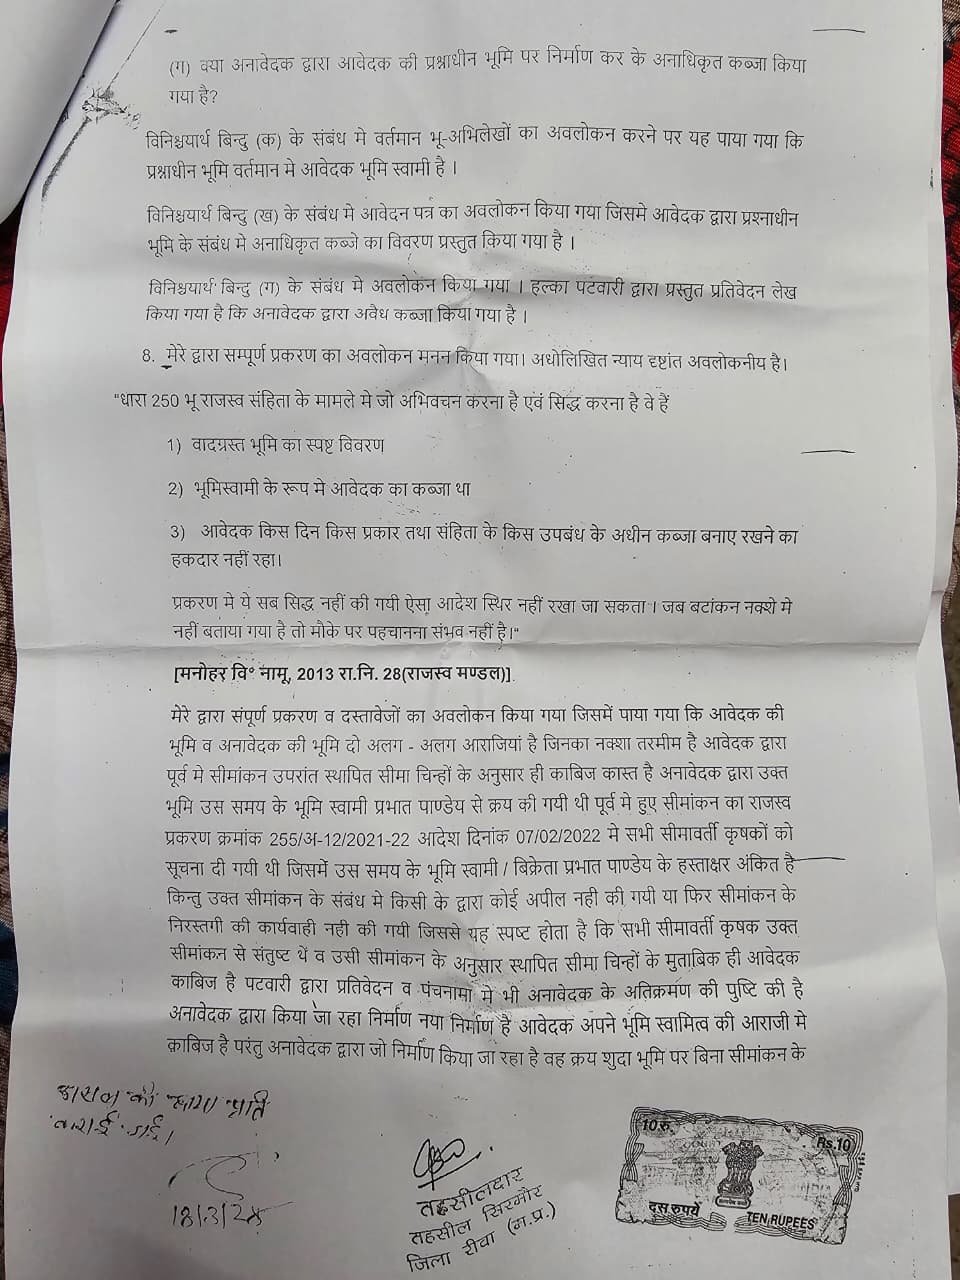 (ग) क्या अनावेदक द्वारा आवेदक की प्रश्नाधीन भूमि पर निर्माण कर के अनाधिकृत कब्जा किया
गया है?
विनिश्चयार्थ बिन्दु (क) के संबंध मे वर्तमान भू-अभिलेखों का अवलोकन करने पर यह पाया गया कि
प्रश्नाधीन भूमि वर्तमान मे आवेदक भूमि स्वामी है ।
विनिश्चयार्थ बिन्दु (ख) के संबंध मे आवेदन पत्र का अवलोकन किया गया जिसमे आवेदक द्वारा प्रश्नाधीन
भूमि के संबंध मे अनाधिकृत कब्जे का विवरण प्रस्तुत किया गया है ।
विनिश्चयार्थ बिन्दु (ग) के संबंध मे अवलोकन किया गया । हल्का पटवारी द्वारा प्रस्तुत प्रतिवेदन लेख
किया गया है कि अनावेदक द्वारा अवैध कब्जा किया गया है ।
8. मेरे द्वारा सम्पूर्ण प्रकरण का अवलोकन मनन किया गया। अधोलिखित न्याय दृष्टांत अवलोकनीय है।
"धारा 250 भू राजस्व संहिता के मामले मे जो अभिवचन करना है एवं सिद्ध करना है वे हैं
1) वादग्रस्त भूमि का स्पष्ट विवरण
2) भूमिस्वामी के रूप मे आवेदक का कब्जा था
3) आवेदक किस दिन किस प्रकार तथा संहिता के किस उपबंध के अधीन कब्जा बनाए रखने का
हकदार नहीं रहा।
प्रकरण मे ये सब सिद्ध नहीं की गयी ऐसा आदेश स्थिर नहीं रखा जा सकता । जब बटांकन नक्शे मे
नहीं बताया गया है तो मौके पर पहचानना संभव नहीं है।"
[मनोहर वि० नामू, 2013 रा.नि. 28(राजस्व मण्डल)]
मेरे द्वारा संपूर्ण प्रकरण व दस्तावेजों का अवलोकन किया गया जिसमें पाया गया कि आवेदक की
भूमि व अनावेदक की भूमि दो अलग - अलग आराजियां है जिनका नक्शा तरमीम है आवेदक द्वारा
पूर्व मे सीमांकन उपरांत स्थापित सीमा चिन्हों के अनुसार ही काबिज कास्त है अनावेदक द्वारा उक्त
भूमि उस समय के भूमि स्वामी प्रभात पाण्डेय से क्रय की गयी थी पूर्व मे हुए सीमांकन का राजस्व
प्रकरण क्रमांक 255/अ-12/2021-22 आदेश दिनांक 07/02/2022 मे सभी सीमावर्ती कृषकों को
सूचना दी गयी थी जिसमें उस समय के भूमि स्वामी / बिक्रेता प्रभात पाण्डेय के हस्ताक्षर अंकित है
किन्तु उक्त सीमांकन के संबंध मे किसी के द्वारा कोई अपील नही की गयी या फिर सीमांकन के
निरस्तगी की कार्यवाही नही की गयी जिससे यह स्पष्ट होता है कि सभी सीमावर्ती कृषक उक्त
सीमांकन से संतुष्ट थें व उसी सीमांकन के अनुसार स्थापित सीमा चिन्हों के मुताबिक ही आवेदक
काबिज है पटवारी द्वारा प्रतिवेदन व पंचनामा मे भी अनावेदक के अतिक्रमण की पुष्टि की है
अनावेदक द्वारा किया जा रहा निर्माण नया निर्माण है आवेदक अपने भूमि स्वामित्व की आराजी मे
काबिज है परंतु अनावेदक द्वारा जो निर्माण किया जा रहा है वह क्रय शुदा भूमि पर बिना सीमांकन के
को प्रति
कराई गई।
तहसीलदार
तहसील सिरमौर
जिला रीवा (म.प्र.)
10 रु. Rs.10
दस रुपये TEN RUPEES